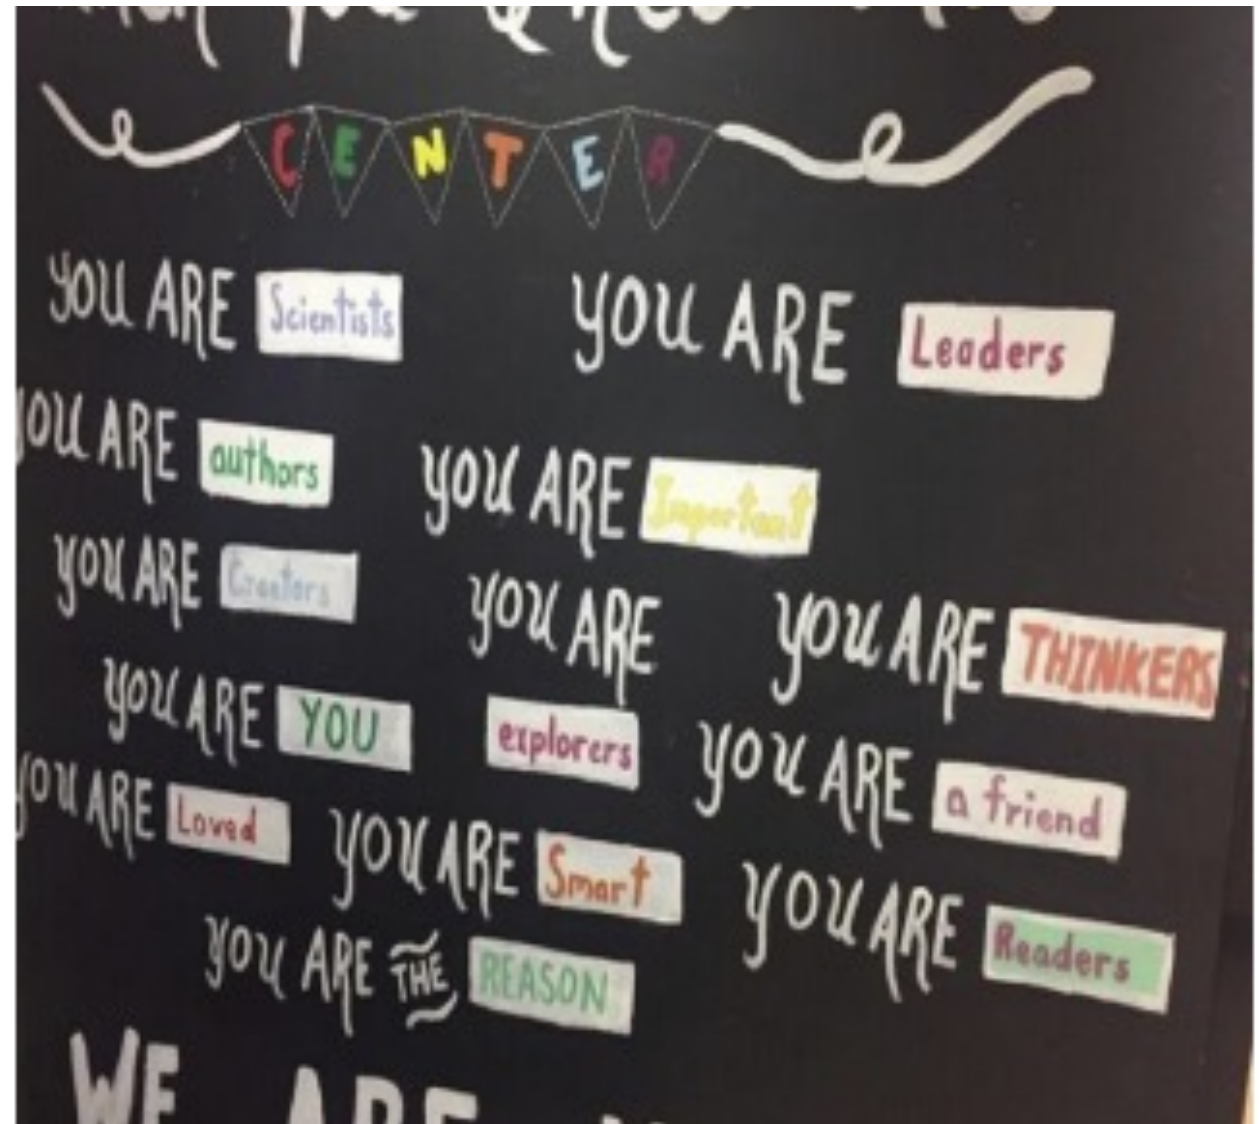 CENTER
YOU ARE Scientists
YOU ARE Leaders
YOU ARE authors
YOU ARE Important
YOU ARE Creators
YOU ARE explorers
YOU ARE THINKERS
YOU ARE YOU
YOU ARE a friend
YOU ARE Loved
YOU ARE Smart
YOU ARE Readers
YOU ARE THE REASON
WE ARE